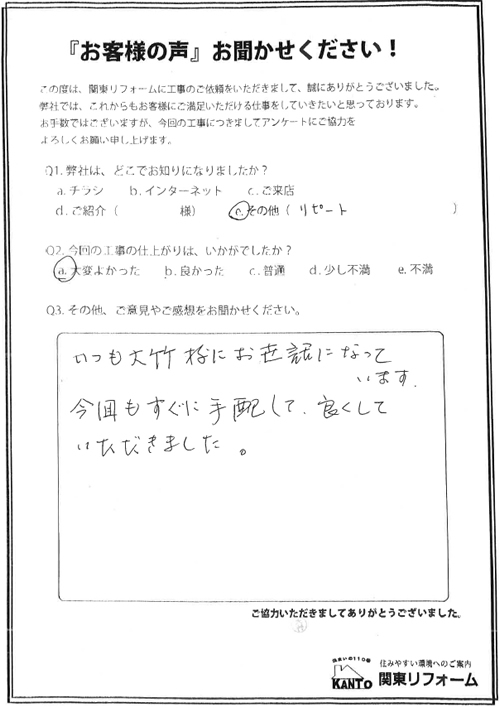 『お客様の声』お聞かせください！
この度は、関東リフォームに工事のご依頼をいただきまして、誠にありがとうございました。
弊社では、これからもお客様にご満足いただける仕事をしていきたいと思っております。
お手数ではございますが、今回の工事につきましてアンケートにご協力を
よろしくお願い申し上げます。
Q1. 弊社は、どこでお知りになりましたか？
a. チラシ　b. インターネット　c. ご来店
d. ご紹介（　　　様）　e. その他（ リピート　　　）
Q2. 今回の工事の仕上がりは、いかがでしたか？
a. 大変よかった　b. 良かった　c. 普通　d. 少し不満　e. 不満
Q3. その他、ご意見やご感想をお聞かせください。
いつも大竹様にお世話になって
います.
今回もすぐに手配して、良くして
いただきました。
ご協力いただきましてありがとうございました。
住まいの110番
KANTO
住みやすい環境へのご案内
関東リフォーム